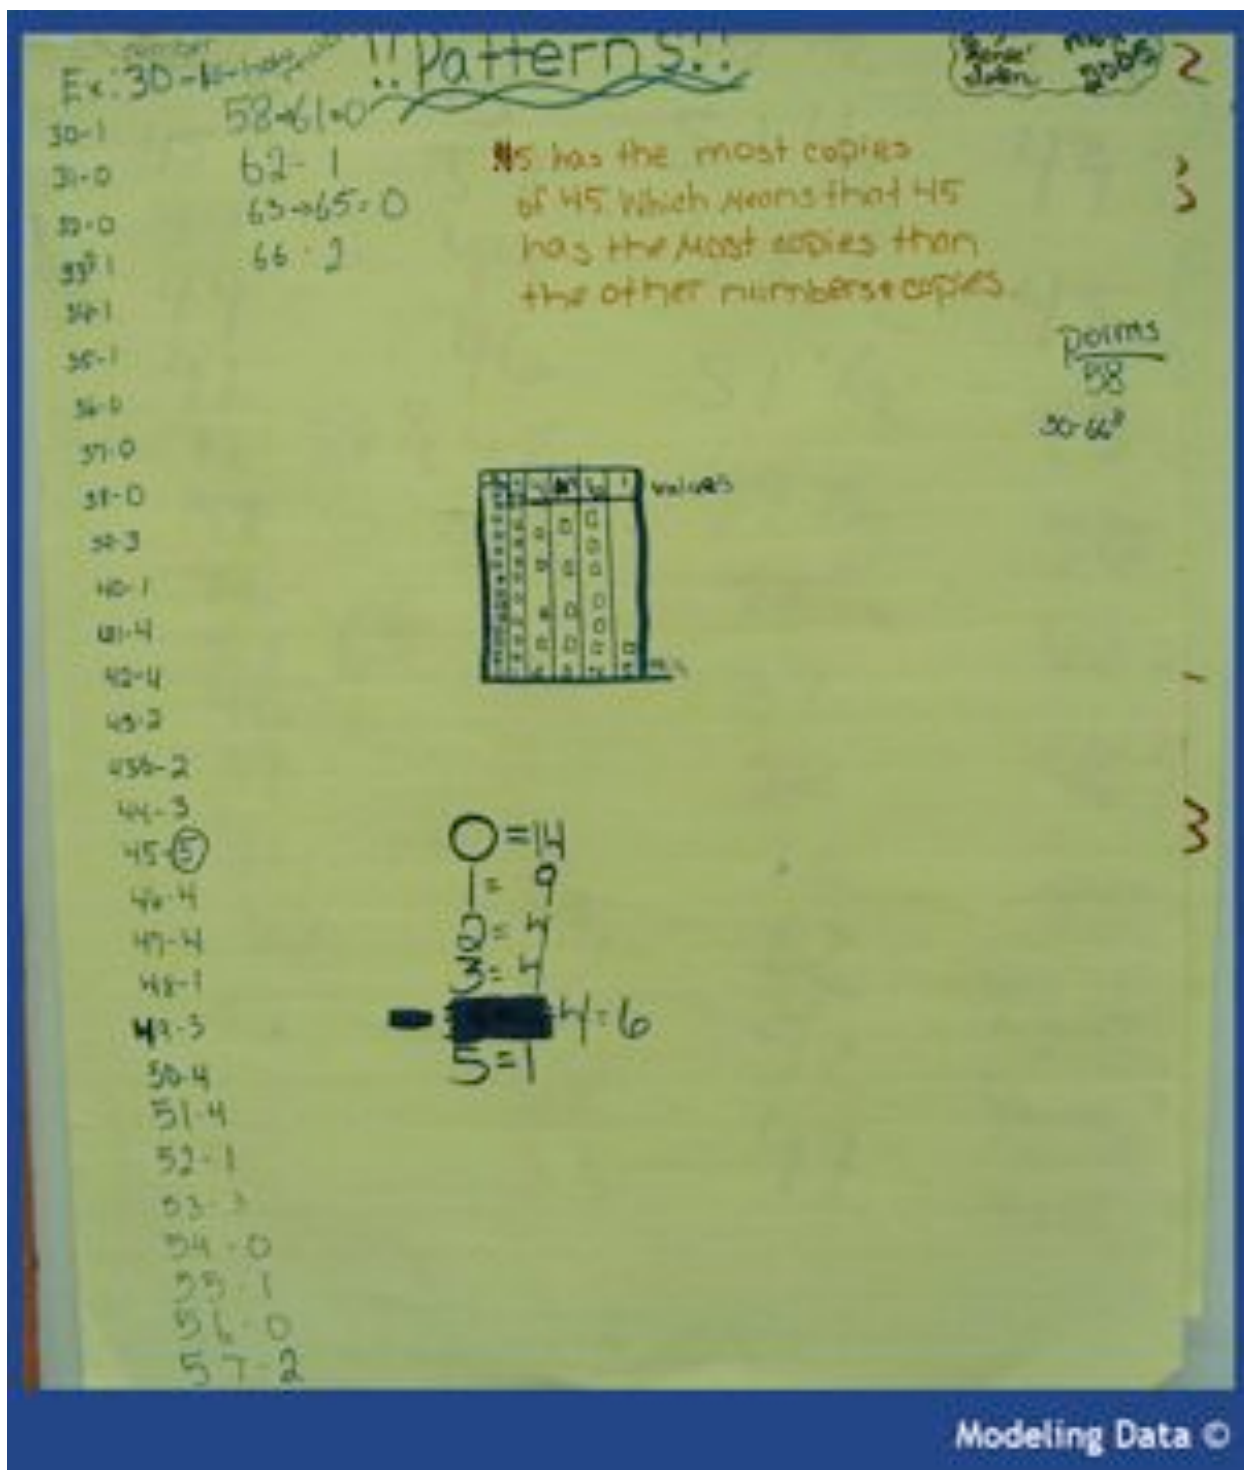 number
!!Patterns!!
Ex: 30-1
2005
2
30-1
31-0
32-0
33-1
34-1
35-1
36-0
37-0
38-0
39-3
40-1
41-4
42-4
43-2
43½-2
44-3
45-5
46-4
47-4
48-1
49-3
50-4
51-4
52-1
53-3
54-0
55-1
56-0
57-2
58→61=0
62-1
63→65=0
66-2
45 has the most copies
of 45. Which means that 45
has the most copies than
the other numbers copies.
3
points
58
30-66
values
O=14
1=9
2=4
3=4
4=6
5=1
3
Modeling Data ©